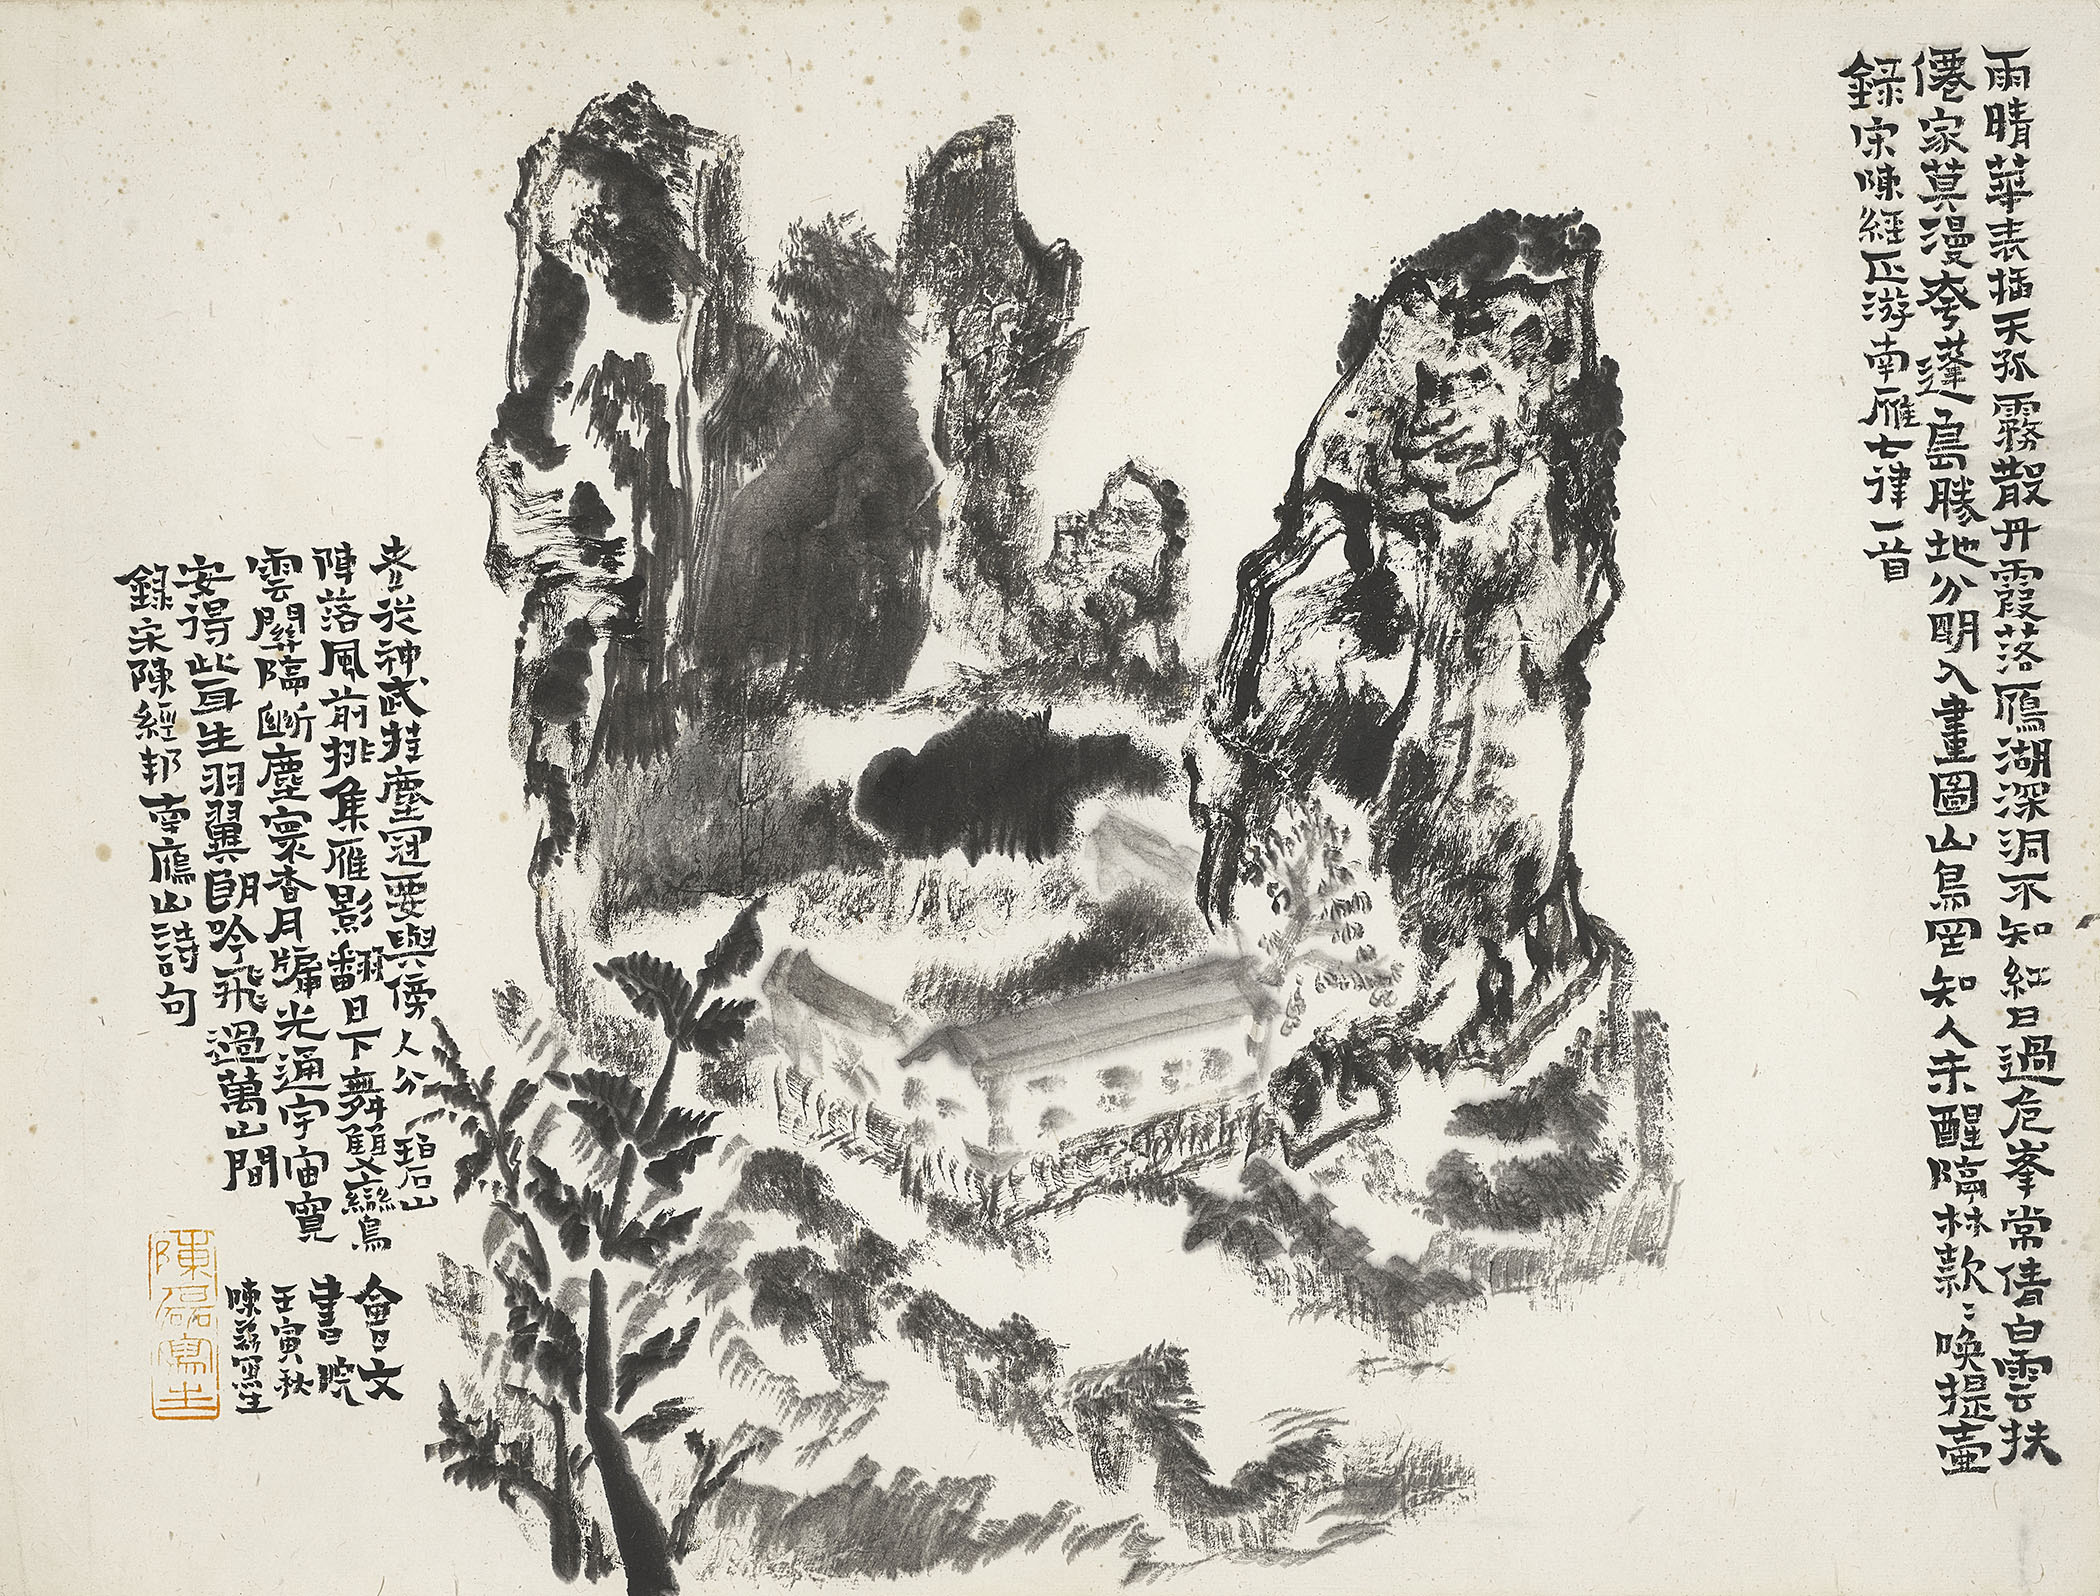 雨晴華表插天孤霧散丹霞落鴈湖深洞不知紅日過危峯常倩白雲扶
僊家莫漫夸蓬島勝地分明入畫圖山鳥罔知人未醒隔林款〻喚提壺
錄宋陳經正游南雁七律一首
老從神武挂塵冠要與傍人分碧石山
陣落風前排集雁影翻日下舞雙鸞鳥
雲關隔斷塵寰杳月牖光通宇宙寬
安得此身生羽翼朗吟飛過萬山間
錄宋陳經邦南鴈山詩句
會文
書院
壬寅秋
陳磊寫生
陳磊寫生